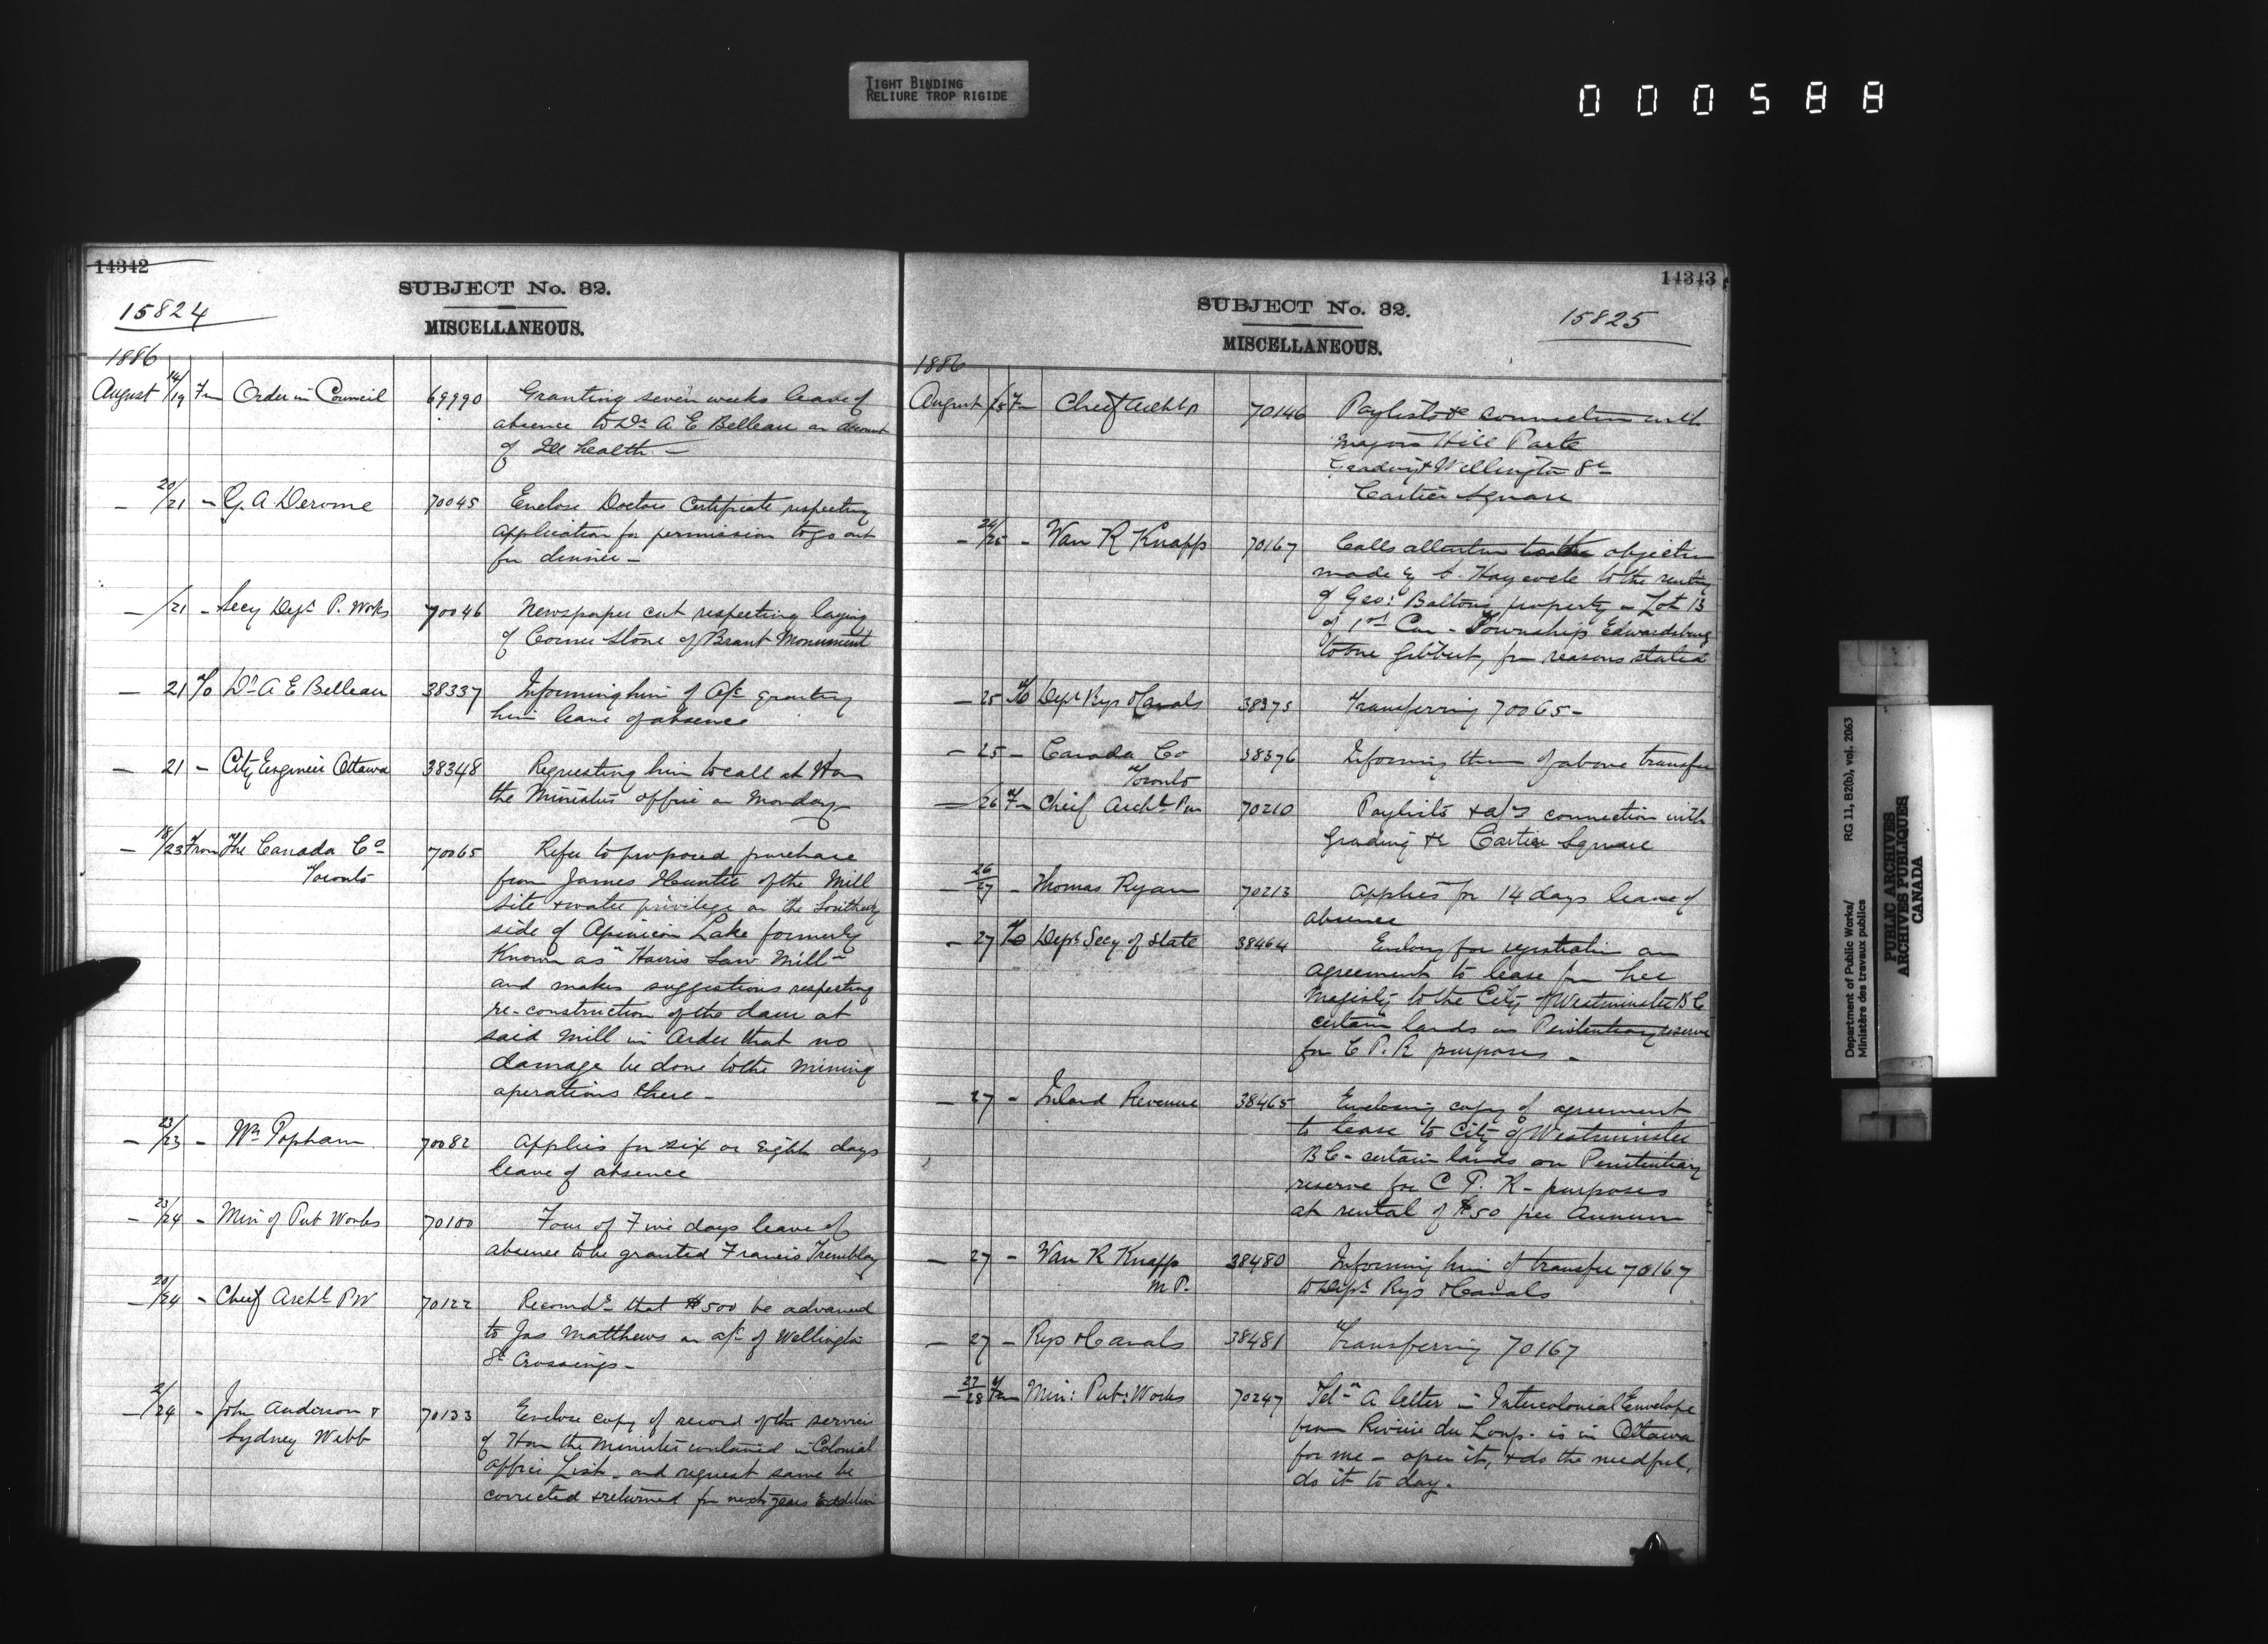 TIGHT BINDING
RELIURE TROP RIGIDE
000588
14342
SUBJECT No. 32.
15824
MISCELLANEOUS.
1886
August 14/19 Fm Order in Council 69990 Granting seven weeks leave of
absence to Dr A E Belleau on account
of Ill health —
— 20/21 — G. A Derome 70045 Enclose Doctors Certificate respecting
application for permission to go out
for dinner —
— /21 — Secy Dept P. Works 70046 Newspaper cut respecting laying
of Corner Stone of Brant Monument
— 21 To Dr A E Belleau 38337 Informing him of O/c granting
him leave of absence
— 21 — City Engineer Ottawa 38348 Requesting him to call at Hon
the Ministers office on Monday
— 18/23 From The Canada Co 70065 Refer to proposed purchase
Toronto from James Hunter of the Mill
site & water privilege on the Southerly
side of Opinicon Lake formerly
Known as "Hairis Saw Mill"
and makes suggestions respecting
re-construction of the dam at
said mill in Order that no
damage be done to the mining
operations there —
— 23/23 — Wm Popham 70082 Applies for six or eight days
leave of absence
— 23/24 — Min of Pub Works 70100 Four of Five days leave of
absence to be granted Francis Tremblay
— 20/24 — Chief Archt PW 70122 Recomds that $500 be advanced
to Jas Matthews on a/c of Wellington
St Crossings —
— 2/24 — John Anderson & 70133 Enclose copy of record of the services
Sydney Webb of Hon the Minister contained in Colonial
Office List — and request same be
corrected & returned for next years Eddition
14343
SUBJECT No. 32.
15825
MISCELLANEOUS.
1886
August /25 Fm Chief Archt 70146 Paylists &c connection with
Majors Hill Park
Grading & Wellington St
Cartier Square
— 24/25 — Wan R Knapp 70167 Calls attention to the objection
made by Haycock to the renting
of Geo: Baltons property — Lot 13
of 1st Con — Township Edwardsburg
to one Gibbert, for reasons stated
— 25 To Dept Rys & Canals 38375 Transferring 70065 —
— 25 — Canada Co 38376 Informing them of above transfer
Toronto
— /26 Fm Chief Archt PW 70210 Paylists & a/cs connection with
Grading &c Cartier Square
— 26/27 — Thomas Ryan 70213 Applies for 14 days leave of
absence
— 27 To Dept Secy of State 38464 Enclosg for registration an
agreement to lease from her
Majesty to the City of Westminster B C
certain lands on Penitentiary reserve
for C P. R purposes —
— 27 — Inland Revenue 38465 Enclosing copy of agreement
to lease to City of Westminster
B C — certain lands on Penitentiary
reserve for C P. R — purposes
at rental of $50 per Annum
— 27 — Wan R Knapp 38480 Informing him of transfer 70167
M P. to Dept Rys & Canals
— 27 — Rys & Canals 38481 Transferring 70167
— 27/28 Fm Min: Pub: Works 70247 Teln A letter in Intercolonial Envelope
from Riviere du Loup — is in Ottawa
for me — open it, & do the needful,
do it to day.
Department of Public Works/ RG 11, B2(b), vol. 2063
Ministère des travaux publics
PUBLIC ARCHIVES
ARCHIVES PUBLIQUES
CANADA